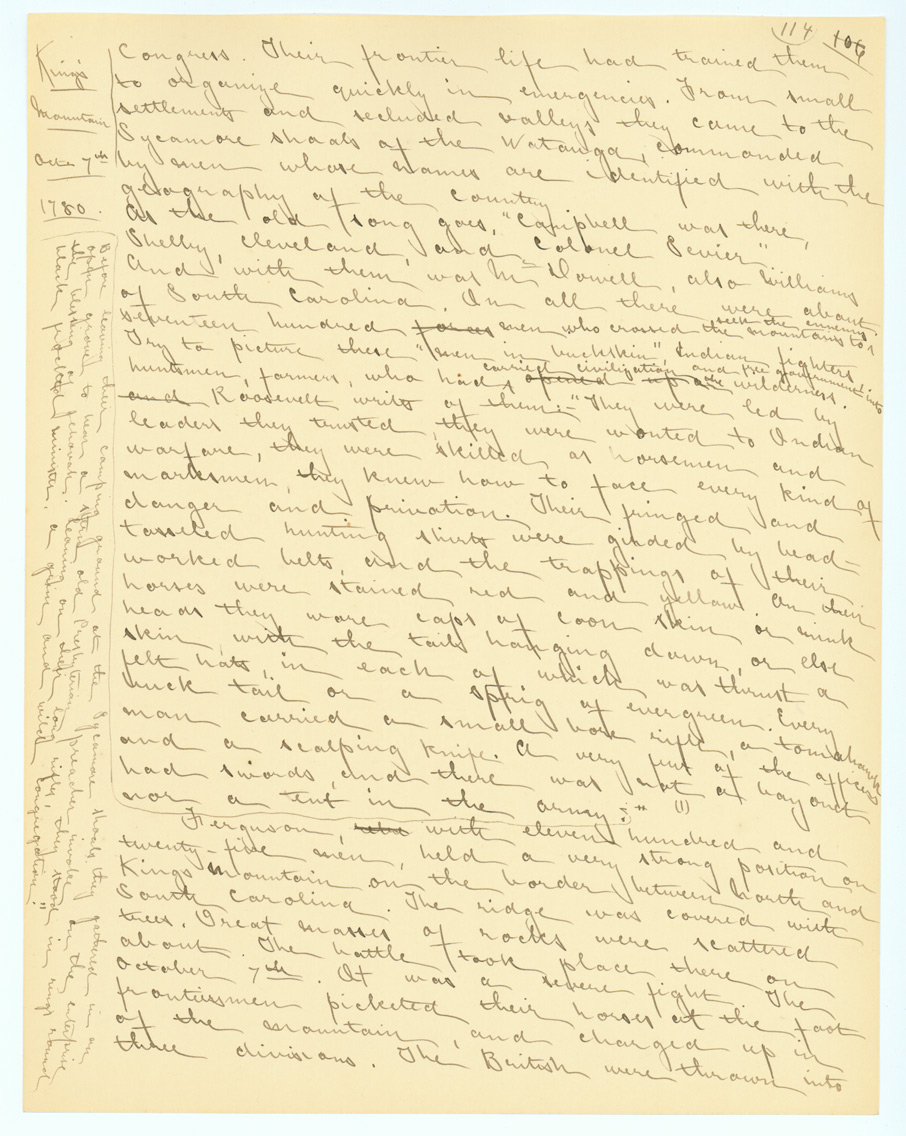 114
106
King's
Mountain
Octo 7th
1780.
Congress. Their frontier life had trained them
to organize quickly in emergencies. From small
settlements and secluded valleys they came to the
Sycamore shoals of the Watauga, commanded
by men whose names are identified with the
geography of the country.
As the old song goes, "Campbell was there,
Shelby, Cleveland, and Colonel Sevier"
And with them was McDowell, also Williams
of South Carolina. In all there were about
seventeen hundred forces men who crossed the mountains to
seek the enemy.
Try to picture these "men in buckskin", Indian fighters
huntsmen, farmers, who had opened up a the wilderness.
carried civilization and free government into
and Roosevelt writes of them:- "They were led by
leaders they trusted, they were wonted to Indian
warfare, they were skilled as horsemen and
marksmen, they knew how to face every kind of
danger and privation. Their fringed and
tasseled hunting shirts were girded by bead-
worked belts, and the trappings of their
horses were stained red and yellow. On their
heads they wore caps of coon skin or mink
skin with the tails hanging down, or else
felt hats, in each of which was thrust a
buck tail or a sprig of evergreen. Every
man carried a small bore rifle, a tomahawk
and a scalping knife. A very few of the officers
had swords, and there was not a bayonet
nor a tent in the army." (1)
Before leaving their camping ground at the Sycamore shoals they gathered in an
open grove to hear a stern old Presbyterian preacher invoke on the enterprise
the blessing of Jehovah. Leaning on their long rifles, they stood in rings round
black frocked minister, a grim and wild congregation."
Ferguson, with eleven hundred and
twenty-five men, held a very strong position on
Kings Mountain on the border between North and
South Carolina. The ridge was covered with
trees. Great masses of rocks were scattered
about. The battle took place there on
October 7th. It was a severe fight. The
frontiersmen picketed their horses at the foot
of the mountain, and charged up in
three divisions. The British were thrown into